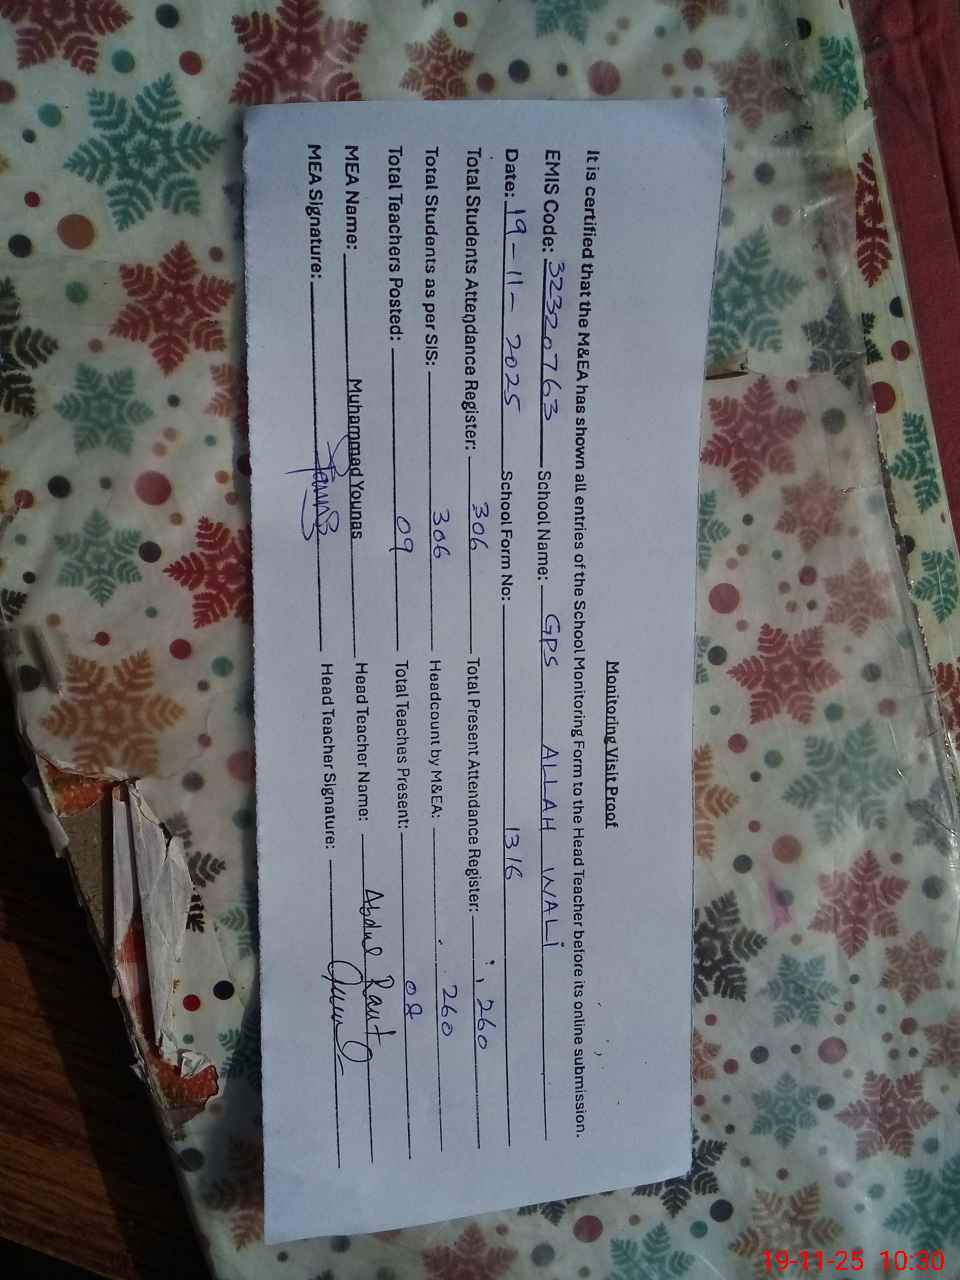 Monitoring Visit Proof
It is certified that the M&EA has shown all entries of the School Monitoring Form to the Head Teacher before its online submission.
EMIS Code: 32320763 School Name: GPS ALLAH WALI
Date: 19-11-2025 School Form No: 1316
Total Students Attendance Register: 306 Total Present Attendance Register: 260
Total Students as per SIS: 306 Headcount by M&EA: 260
Total Teachers Posted: 09 Total Teaches Present: 08
MEA Name: Muhammad Younas Head Teacher Name: Abdul Rauf
MEA Signature: Head Teacher Signature:
19-11-25 10:30